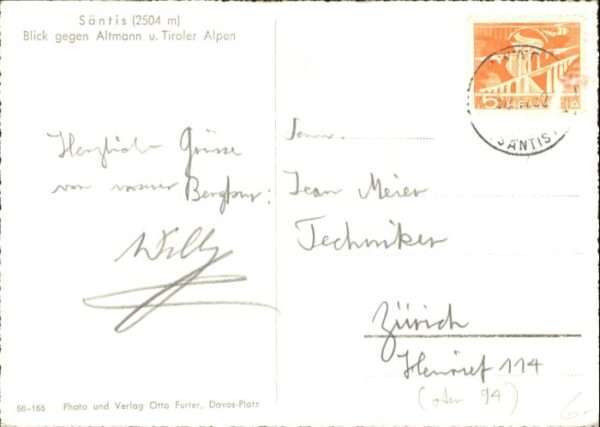 Säntis (2504 m)
Blick gegen Altmann u. Tiroler Alpen
Herzliche Grüsse
von unserer Bergtour:
Willy
Herrn
Jean Meier
Techniker
Zürich
114
(oder 94)
5
SÄNTIS
66-165 Photo und Verlag Otto Furter, Davos-Platz